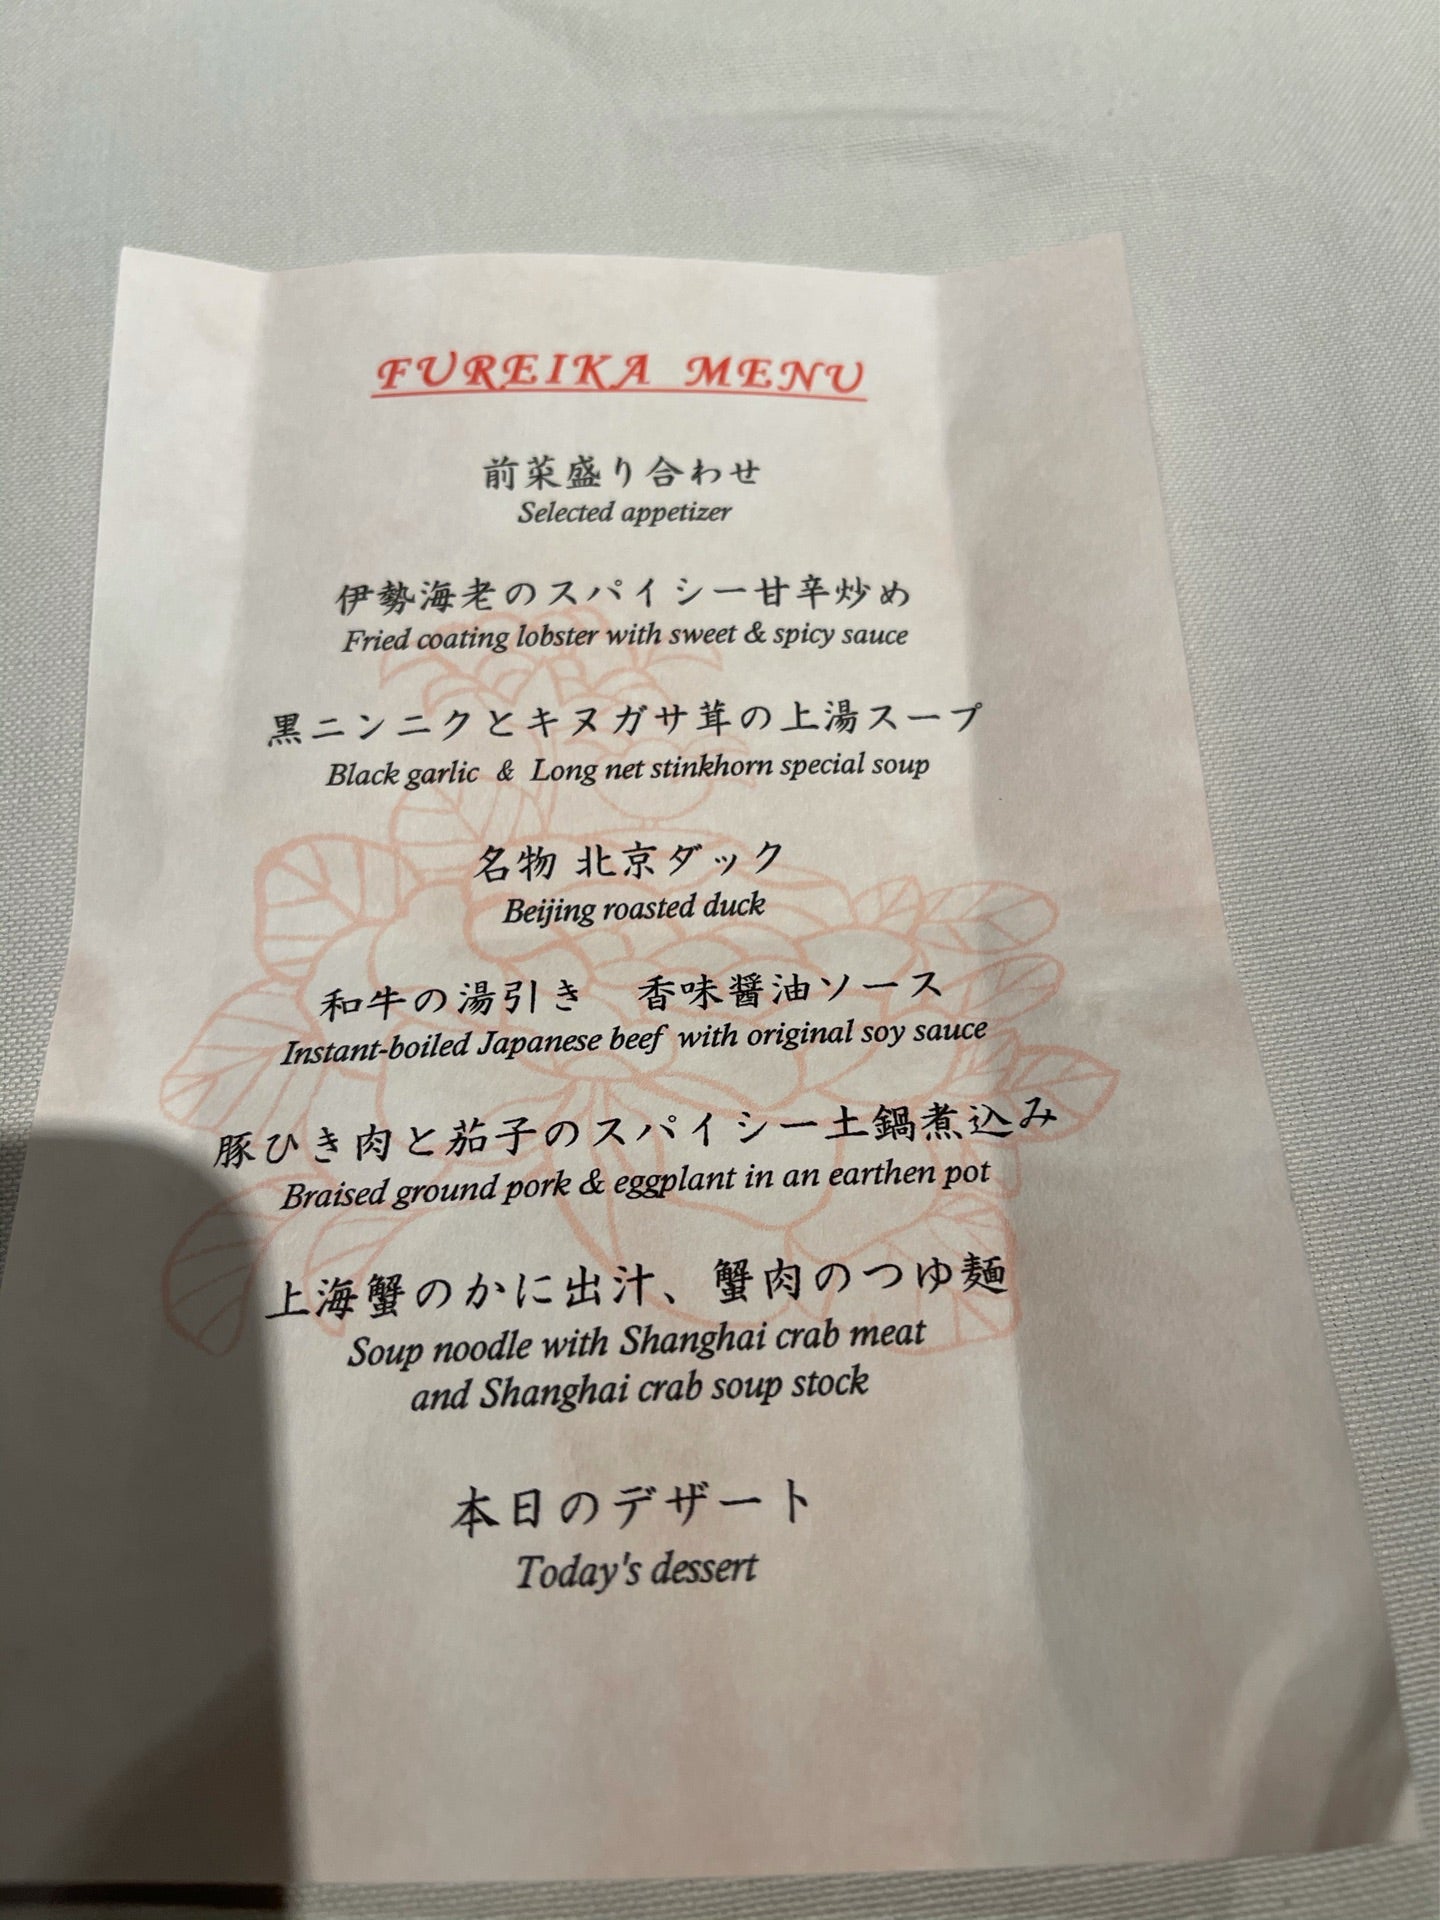 FUREIKA MENU
前菜盛り合わせ
Selected appetizer
伊勢海老のスパイシー甘辛炒め
Fried coating lobster with sweet & spicy sauce
黒ニンニクとキヌガサ茸の上湯スープ
Black garlic & Long net stinkhorn special soup
名物 北京ダック
Beijing roasted duck
和牛の湯引き　香味醤油ソース
Instant-boiled Japanese beef with original soy sauce
豚ひき肉と茄子のスパイシー土鍋煮込み
Braised ground pork & eggplant in an earthen pot
上海蟹のかに出汁、蟹肉のつゆ麺
Soup noodle with Shanghai crab meat
and Shanghai crab soup stock
本日のデザート
Today's dessert